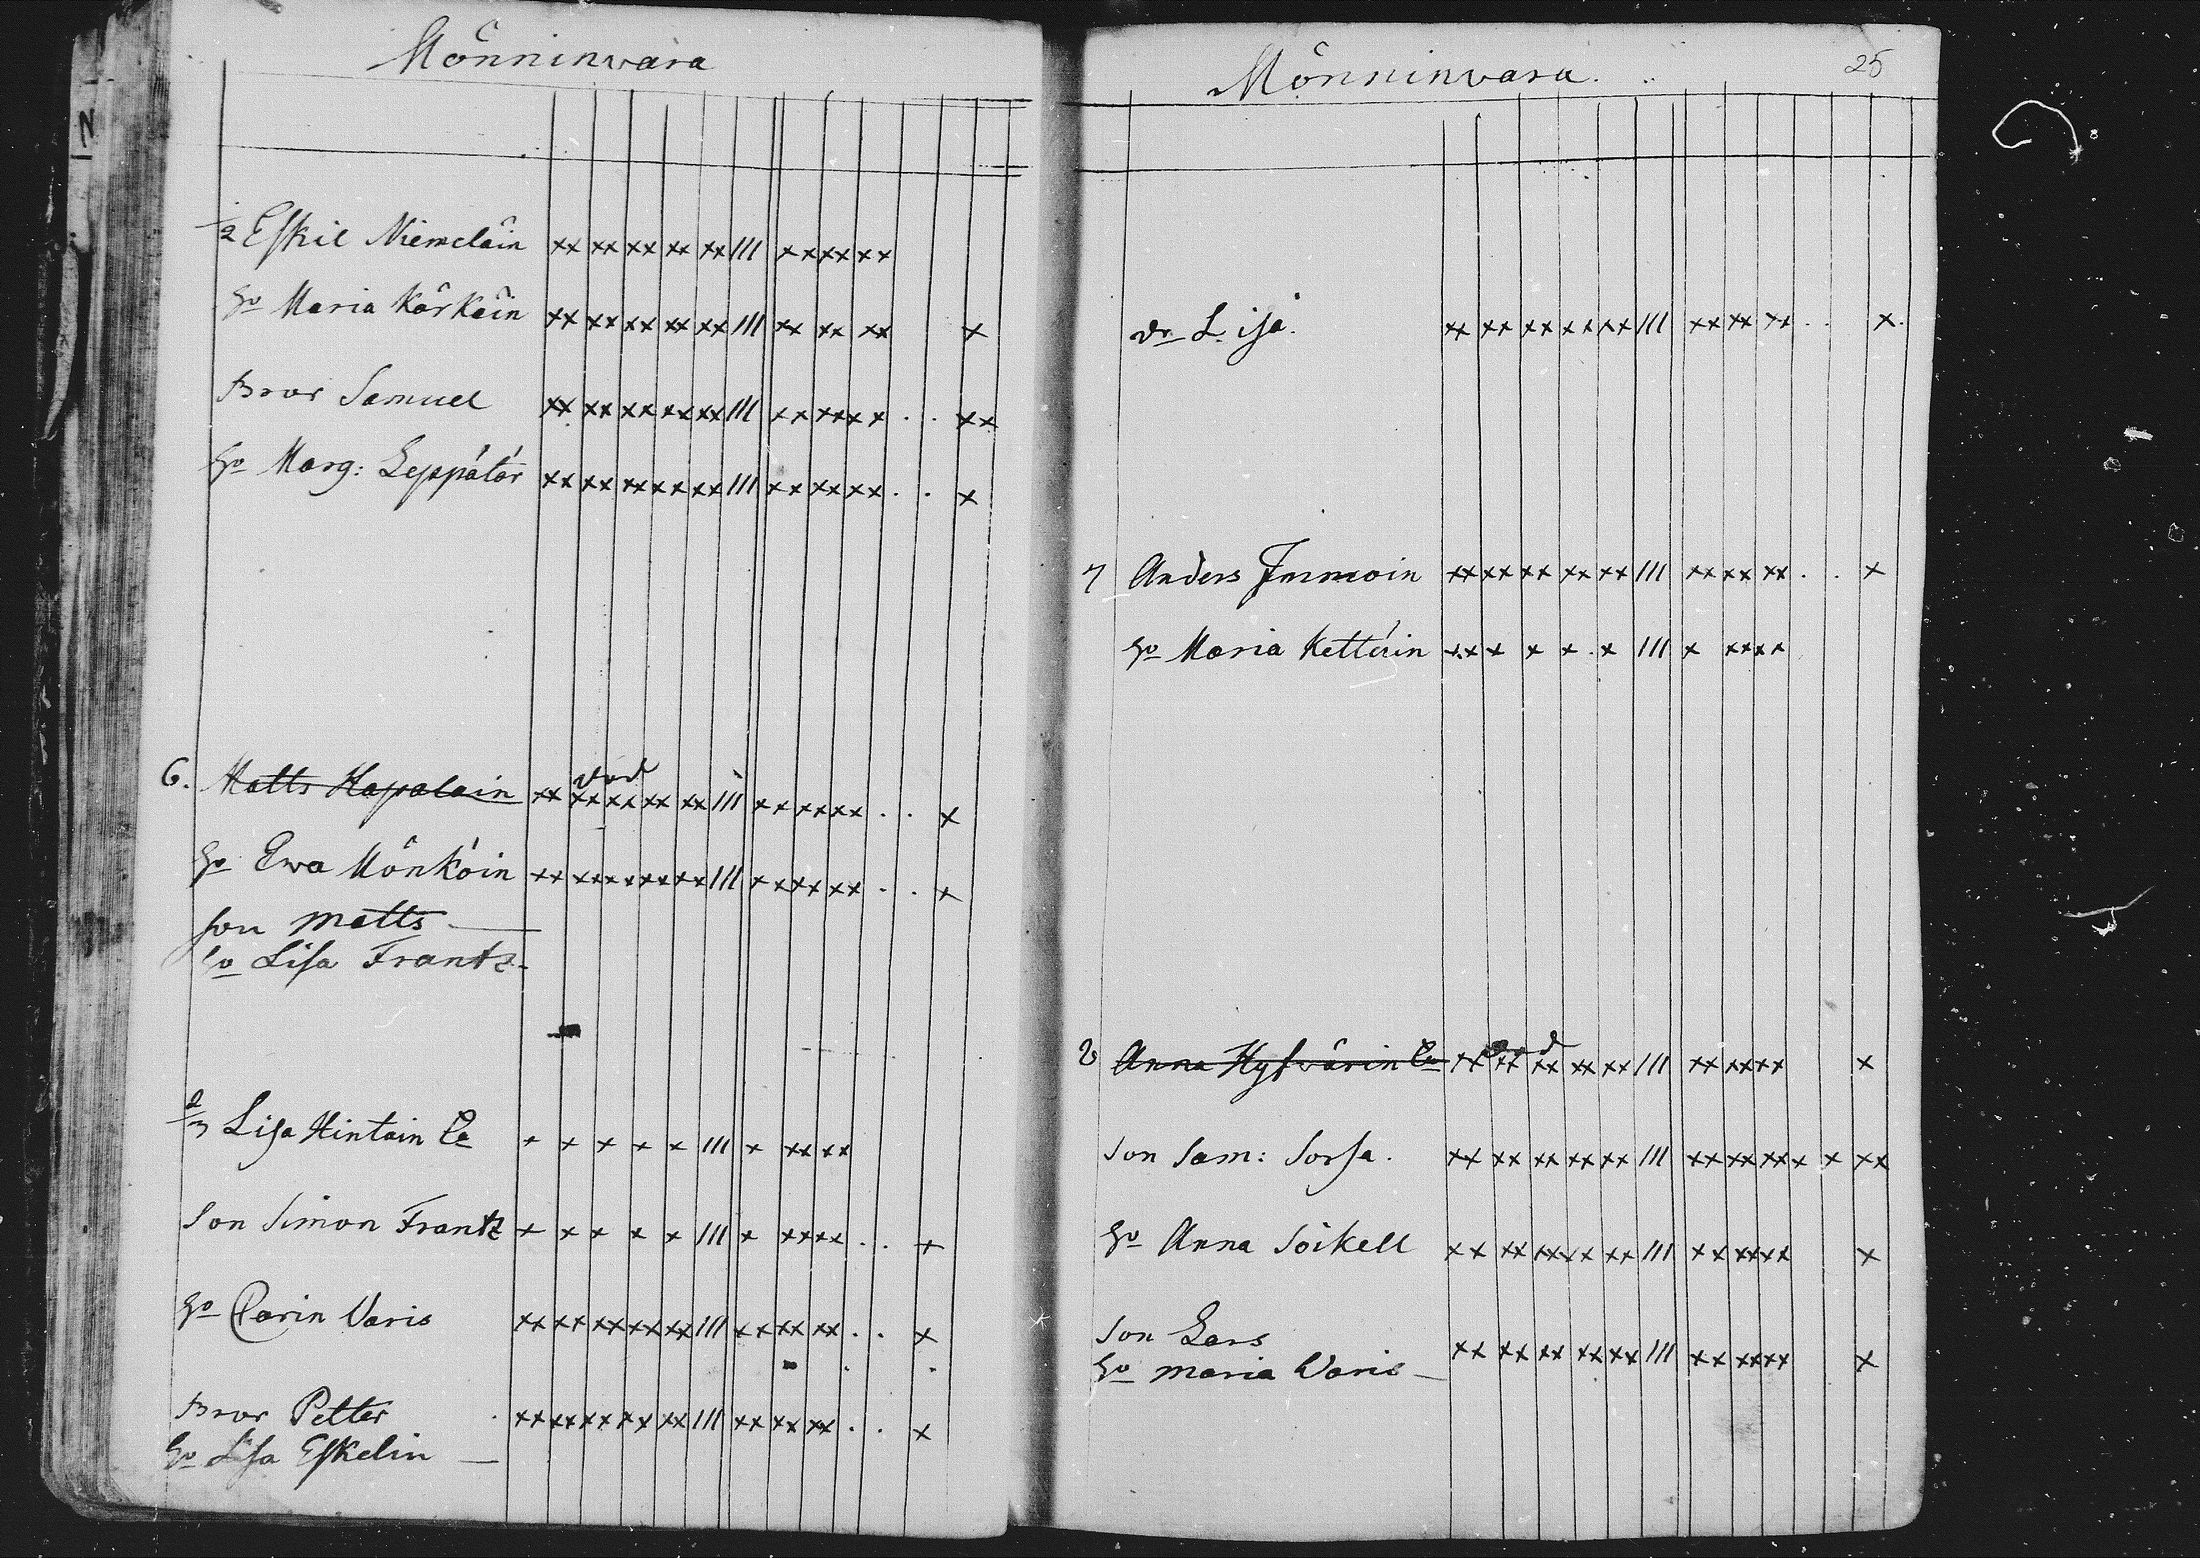 Mönninwara
1/2 Eskil Niemeläin xx xx xx xx xx III xx xx xx
Ho Maria Kärkäin xx xx xx xx xx III xx xx xx x
Bror Samuel xx xx xx xx xx III xx xx xx . . xx
Ho Marg: Leppätär xx xx xx xx xx III xx xx xx . . x
död
6. Matts Hapalain xx xx xx xx xx III xx xx xx . . x
Ho Ewa Mönköin xx xx xx xx xx III xx xx xx . . x
son Matts
Ho Lisa Frantz
2/3 Lisa Hintain Ea x x x x x III x xx xx
Son Simon Frantz x x x x x III x xx xx . . x
Ho Carin Varis xx xx xx xx xx III xx xx xx . . x
Bror Petter xx xx xx xx xx III xx xx xx . . x
Ho Lisa Eskelin
Mönninwara.
25
dr Lisa. xx xx xx xx xx III xx xx xx . . x.
7 Anders Immoin xx xx xx xx xx III xx xx xx . . x
Ho Maria Kettuin xx x x x x III x xx xx
död
8 Anna Hyfwärin Ea xx xx xx xx xx III xx xx xx x
Son Sam: Sorsa. xx xx xx xx xx III xx xx xx x x xx
Ho Anna Soikell xx xx xx xx xx III xx xx xx x
Son Lars xx xx xx xx xx III xx xx xx x
Ho Maria Varis